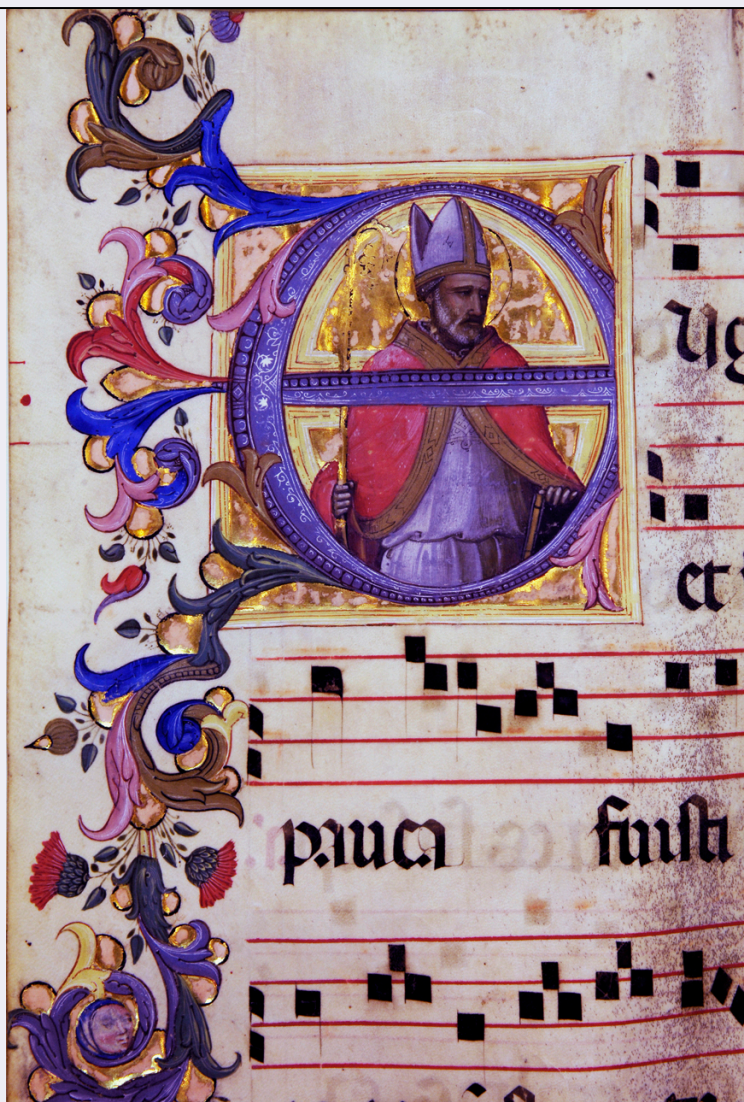 EUg
et
pauca fuisti